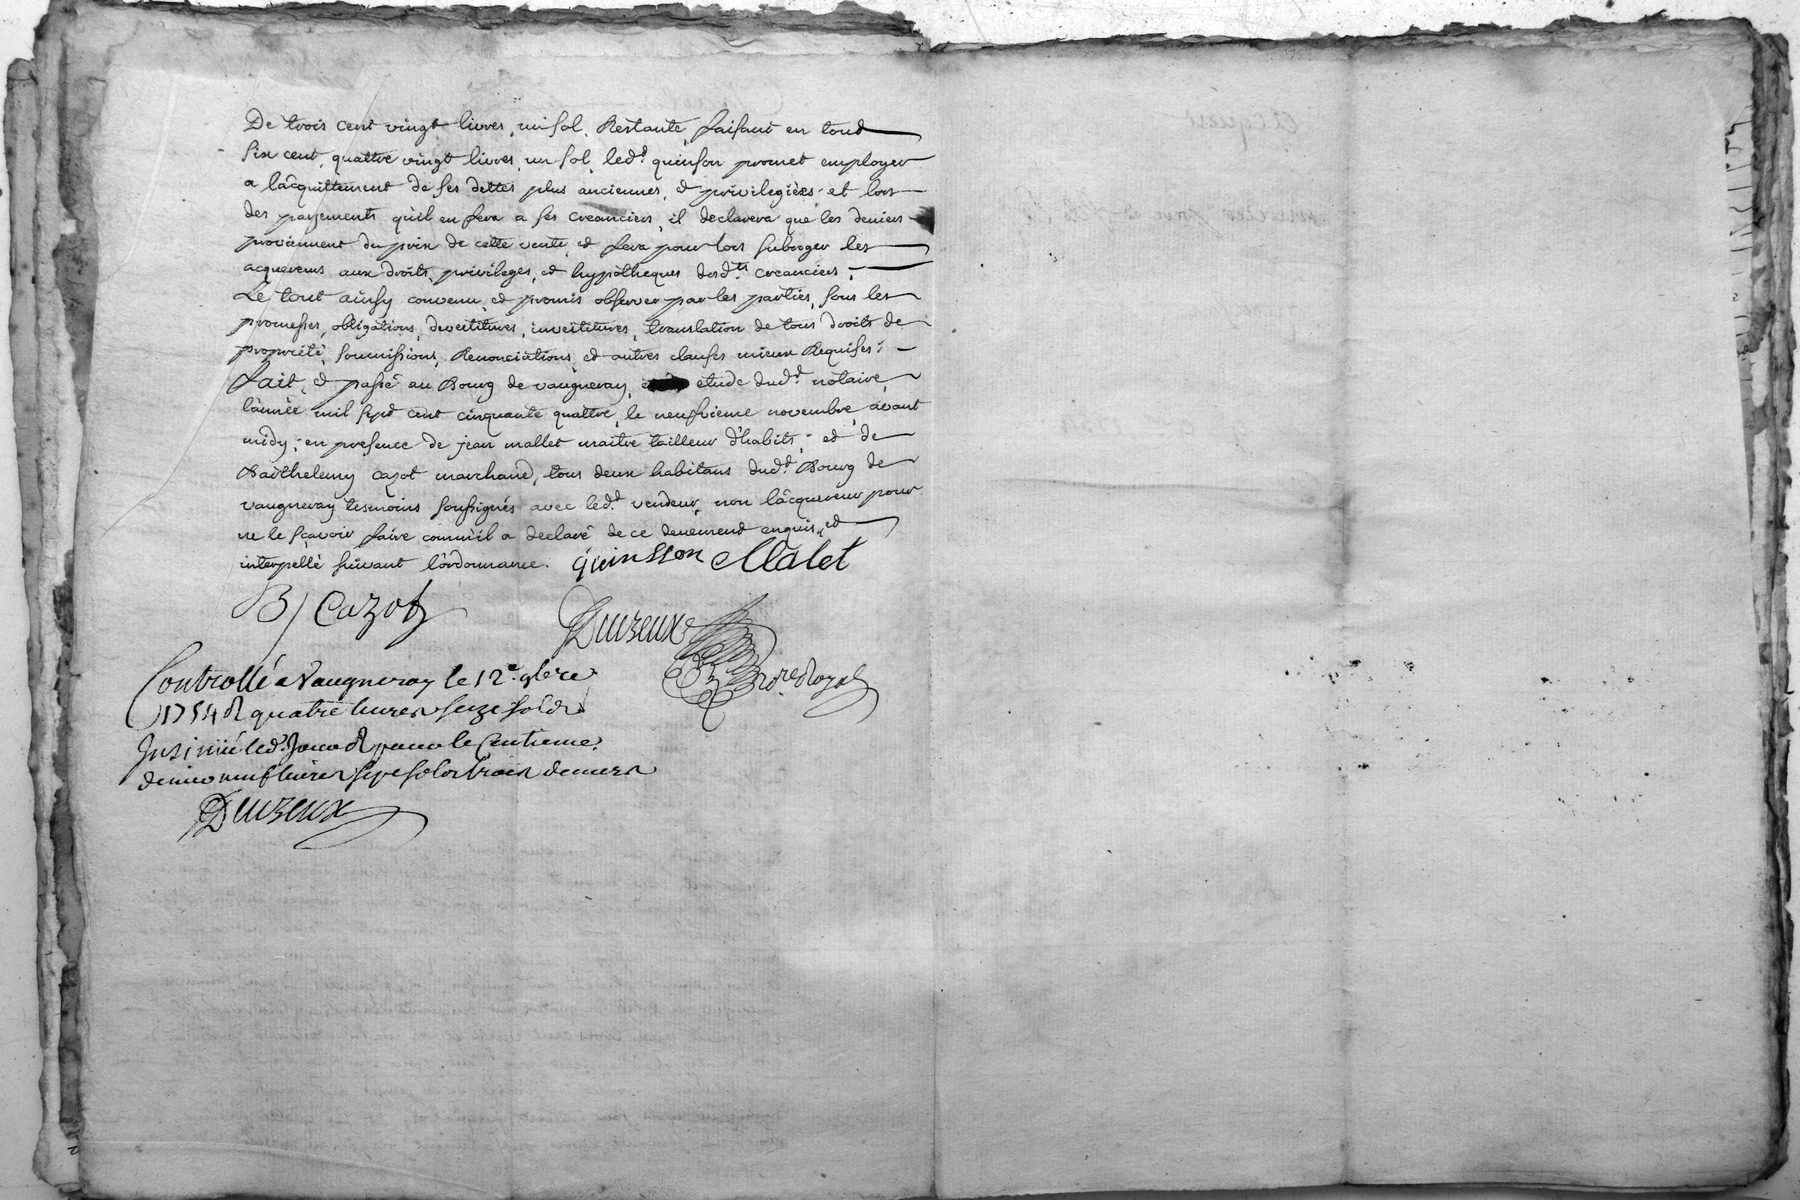 De trois cent vingt livres, un sol. Restante, faisant en tout
six cent, quattre vingt livres, un sol, led.t quinson promet employer
a l'acquittement de ses dettes plus anciennes, et privilegiées; et lors
des payements qu'il en fera a ses creanciers, il declarera que les deniers
proviennent du prix de cette vente, et fera pour lors subroger les
acquereurs aux droits, privileges, et hypotheques desd.ts creanciers;
Le tout ainsy convenu, et promis observer par les parties, sous les
promesses, obligations, devestitures, investitures, translation de tous droits de
propriété, soumissions, Renonciations, et autres clauses mieux Requises;
fait, et passé au Bourg de vaugneray, etude dud.t notaire,
l'année mil sept cent cinquante quattre, le neufvieme novembre, avant
midy; en presence de jean mallet maitre tailleur d'habits; et de
Barthelemy cazot marchand, tous deux habitans dud.t Bourg de
vaugneray tesmoins soussignés avec led.t vendeur, non l'acquereur pour
ne le sçavoir faire comm'il a declaré de ce deuement enquis, et
interpellé suivant l'ordonnance. quinsson Malet
B / Cazot
Duzeux
No.re Royal
Controllé a Vaugneray le 12.e 9bre
1754 R quatre livres seize sols
Insinué led. Jour R pour le Centieme
denier neuf livres sept sols trois deniers
Duzeux
Acquest